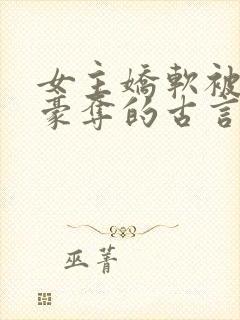 女主嬌軟被
豪奪的古言
巫菁